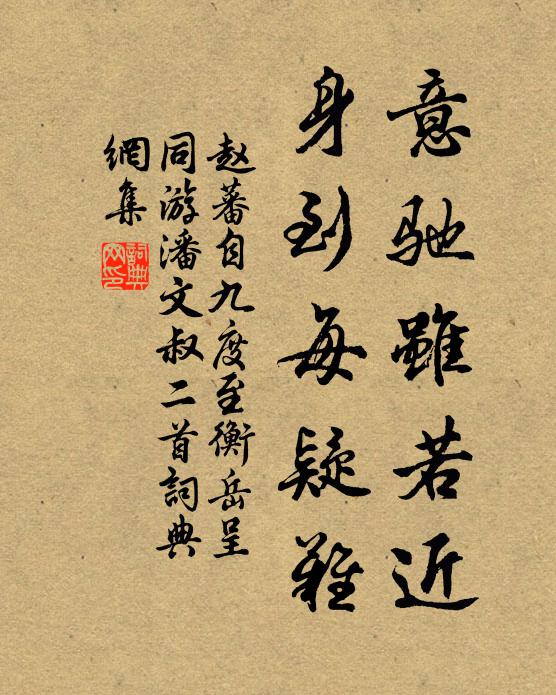 意馳雖若近
身到每疑難
赵蕃自九度至衡岳呈
同游潘文叔二首詞典
網集
詞典
网印